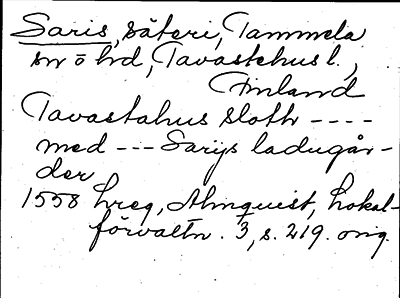 Saris, säteri, Tammela
sn o hd, Tavastehus l.,
Finland
Tavastahus sloth ----
med --- Sarijs ladugår-
der
1558 hreg, Almquist, Lokal-
förvaltn. 3, s. 219. orig.